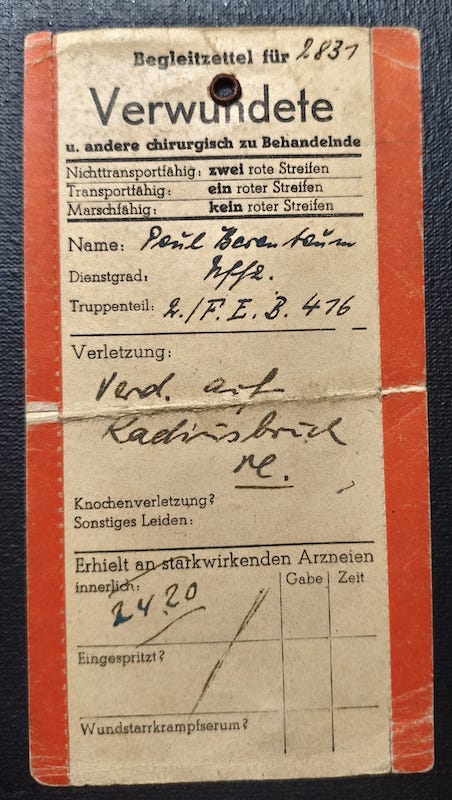 Begleitzettel für 2831
Verwundete
u. andere chirurgisch zu Behandelnde
Nichttransportfähig: zwei rote Streifen
Transportfähig: ein roter Streifen
Marschfähig: kein roter Streifen
Name: Paul
Dienstgrad: Uffz.
Truppenteil: 2./F. E. B. 416
Verletzung:
Verd. auf
Radiusbruch
re.
Knochenverletzung?
Sonstiges Leiden:
Erhielt an starkwirkenden Arzneien
innerlich: Gabe Zeit
2420
Eingespritzt?
Wundstarrkrampfserum?